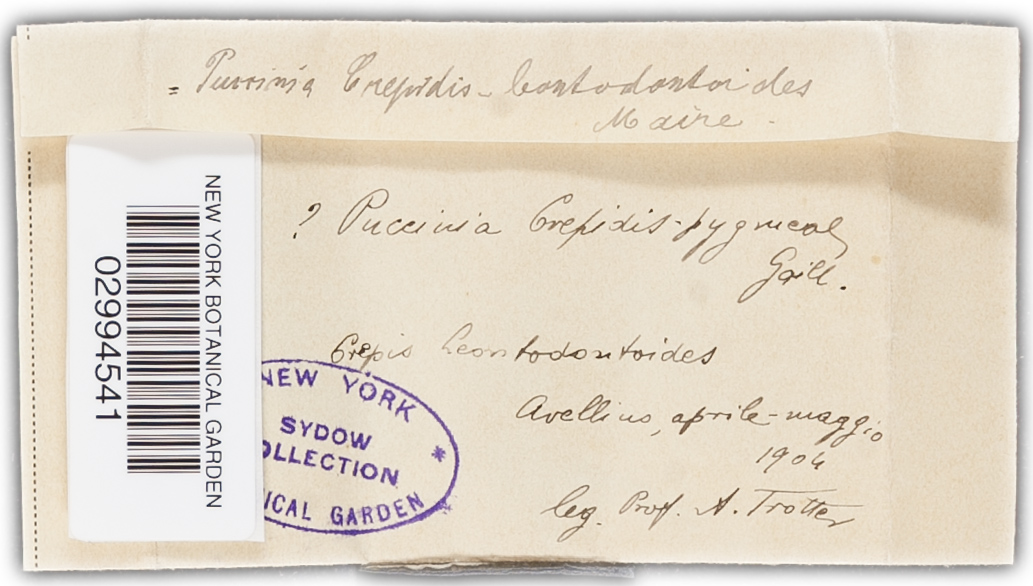 = Puccinia Crepidis-leontodontoides
Maire.
? Puccinia Crepidis-pygmeae
Gaill.
Crepis leontodontoides
Avellino, aprile-maggio
1904
leg. Prof. A. Trotter
NEW YORK BOTANICAL GARDEN
02994541
NEW YORK
SYDOW
OLLECTION
ICAL GARDEN